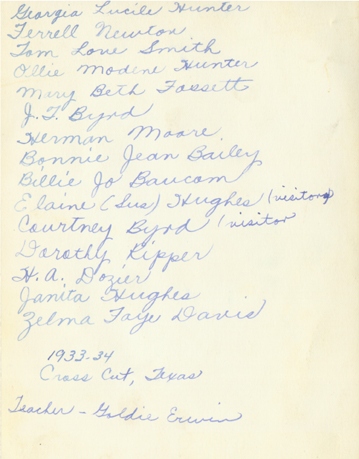 Georgia Lucile Hunter
Terrell Newton
Tom Love Smith
Ollie Modene Hunter
Mary Beth Fossett
J.T. Byrd
Herman Moore
Bonnie Jean Bailey
Billie Jo Baucom
Elaine (Sus) Hughes (visitor)
Courtney Byrd (visitor
Dorothy Kipper
H.A. Dozier
Janita Hughes
Zelma Faye Davis
1933-34
Cross Cut, Texas
Teacher - Goldie Erwin